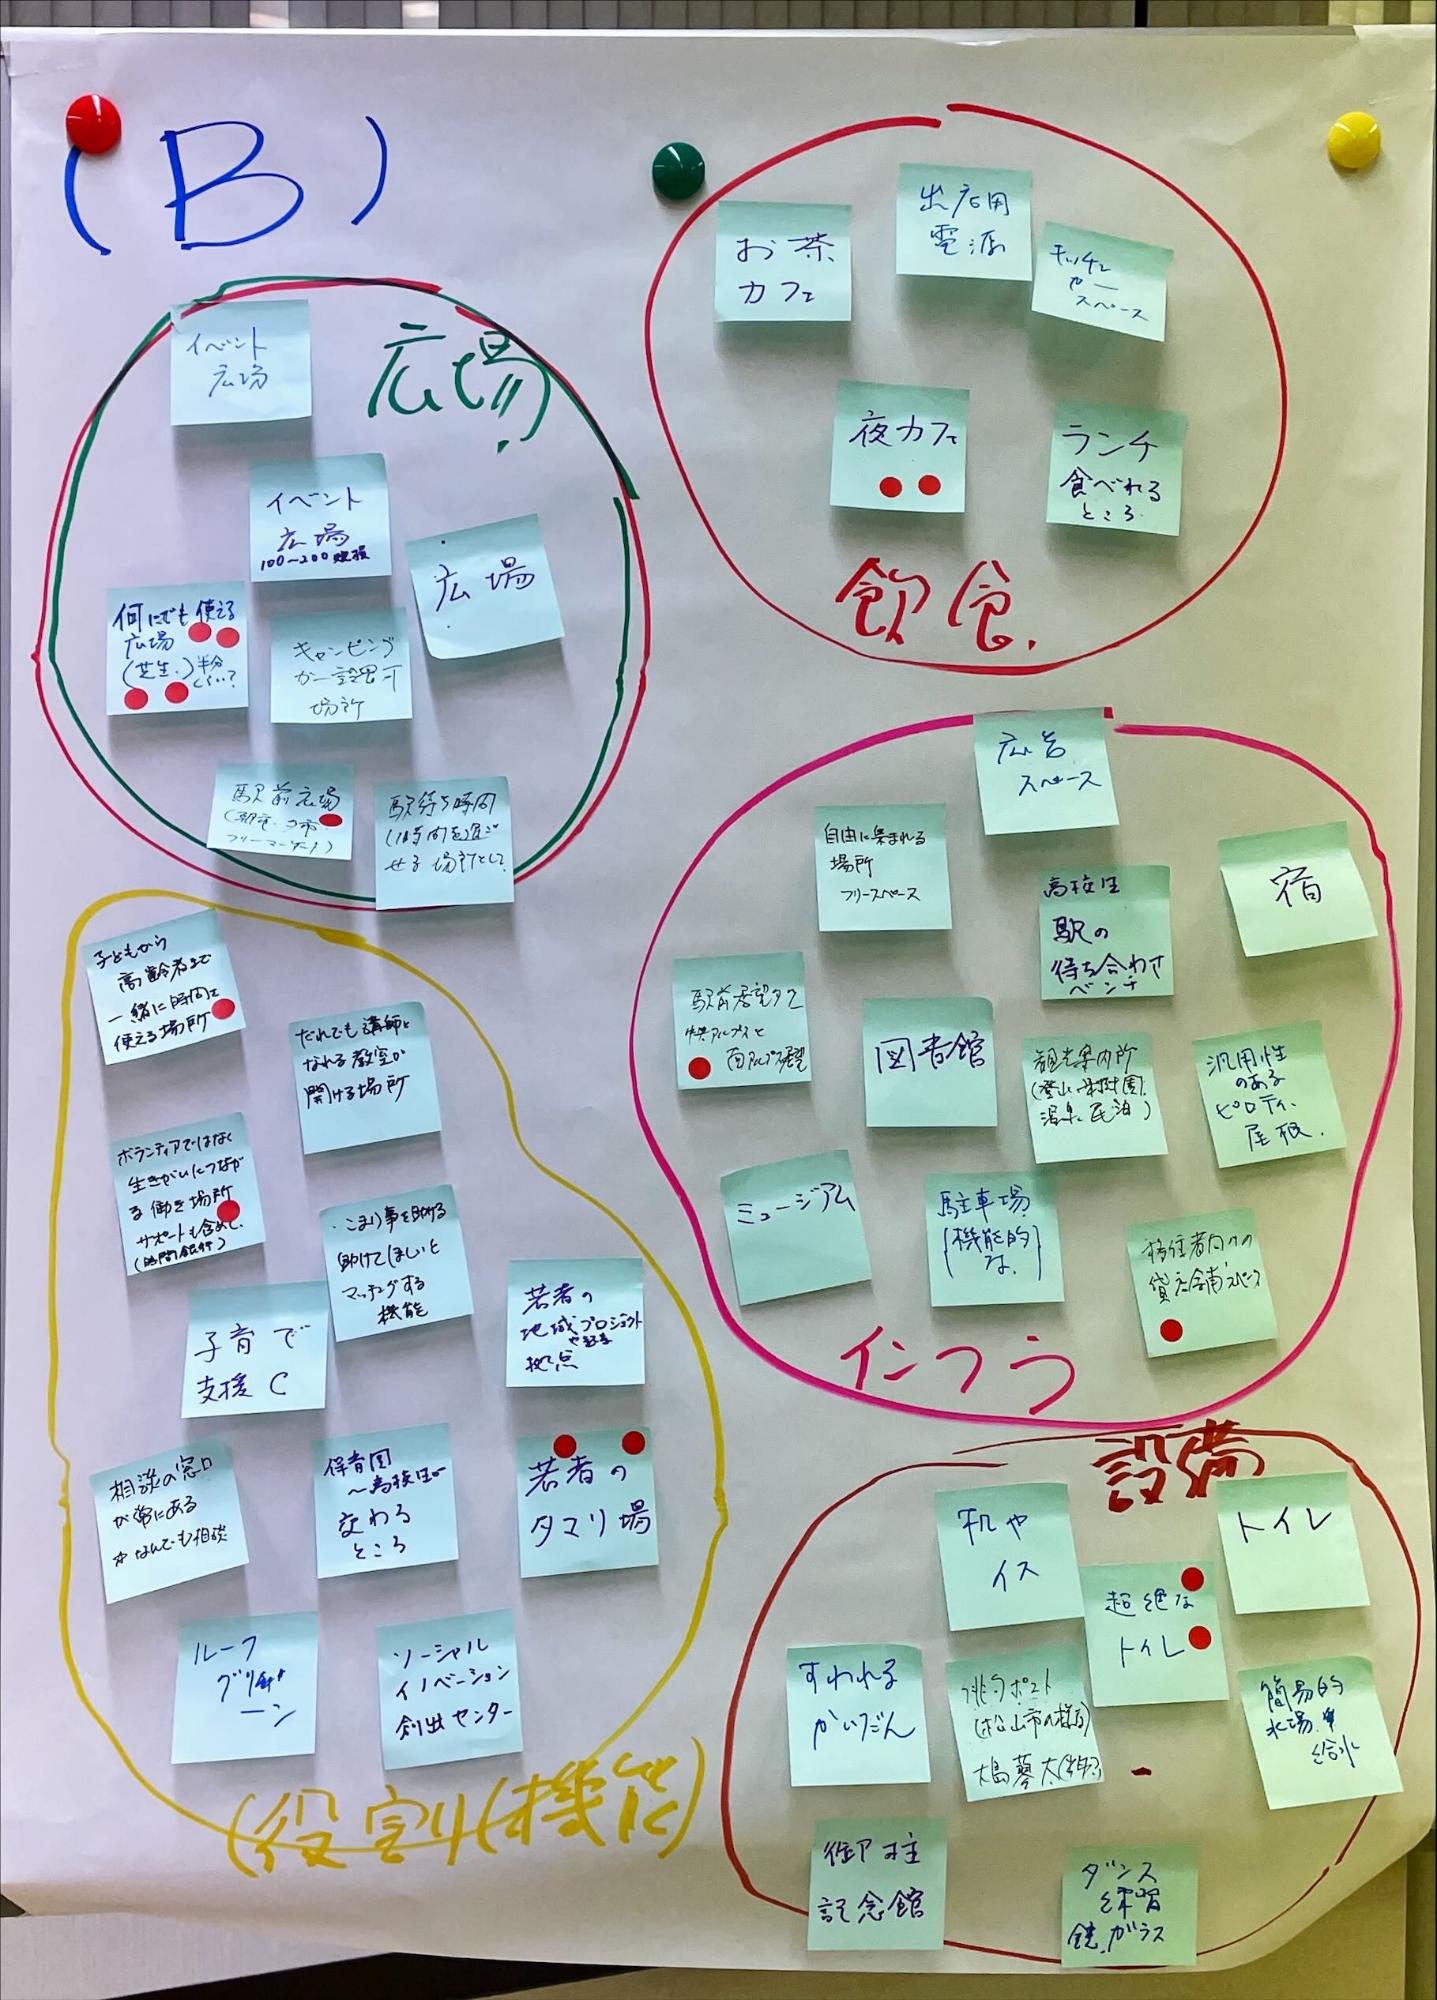 (B)
広場
イベント
広場
イベント
広場
100〜200規模
広場
何にでも使える
広場
(芝生。)半分
くらい?
キャンピング
カー設置可
場所
駅前広場
(朝市・夕市・
フリーマーケット)
駅待ち時間
(1時間を過ご
せる場所として
お茶
カフェ
出店用
電源
キッチン
カー
スペース
夜カフェ
ランチ
食べれる
ところ
飲食.
広告
スペース
自由に集まれる
場所
フリースペース
高校生
駅の
待ち合わせ
ベンチ
宿
駅前展望タワー
中央アルプスと
南アルプス展望
図書館
観光案内所
(登山、果樹園、
温泉、民泊)
汎用性
のある
ピロティ、
屋根.
ミュージアム
駐車場
(機能的
な.
移住者向けの
貸店舗スペース
インフラ
子どもから
高齢者まで
一緒に時間を
使える場所
だれでも講師と
なれる教室が
開ける場所
ボランティアではなく
生きがいにつなが
る働き場所
サポートも含めて、
(時間銀行)
・こまり事を助ける
助けてほしいと
マッチングする
機能
子育て
支援C
若者の
地域プロジェクト
や
拠点
相談の窓口
が常にある
なんでも相談
保育園
〜高校生が
交わる
ところ
若者の
タマリ場
ルーフ
グリ
ーン
ソーシャル
イノベーション
創出センター
(役割り(機能)
設備
机や
イス
超絶な
トイレ
トイレ
すわれる
かいだん
俳句ポスト
(松山市の様な)
大島蓼太(
簡易的
水場、
給水
御柱
記念館
ダンス
練習
鏡、ガラス